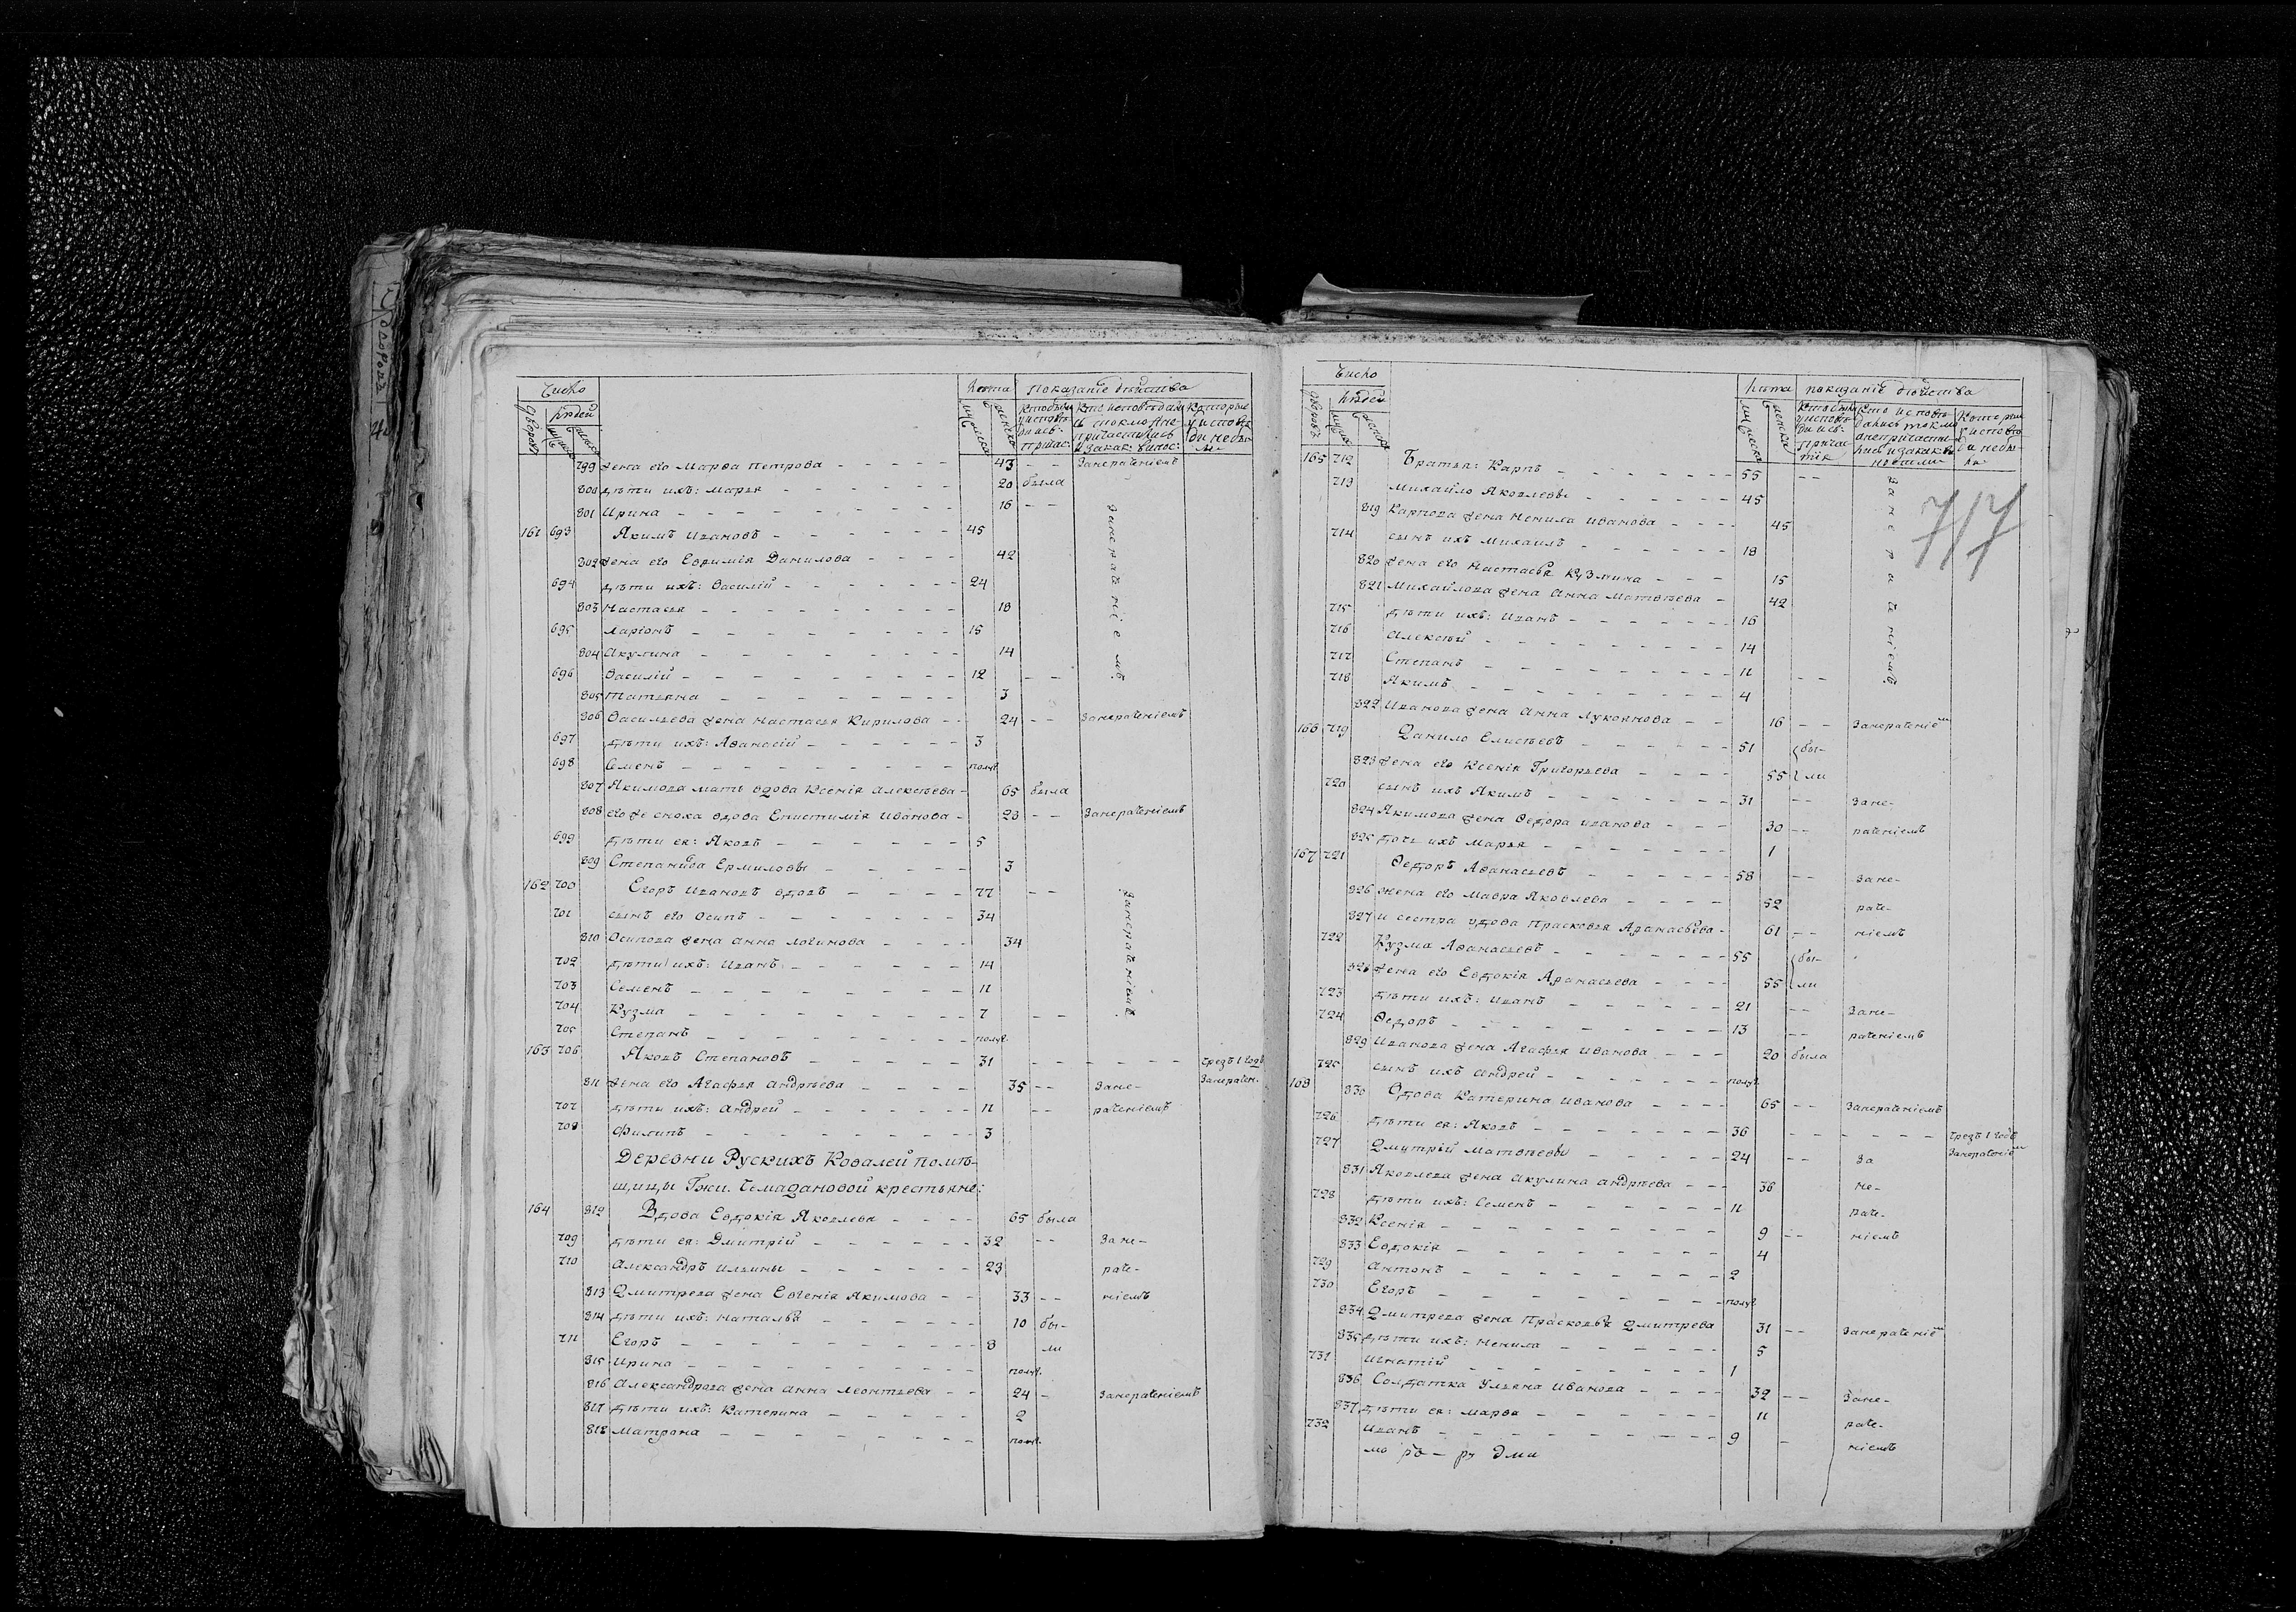 Число
людей
лета
показание действа
799 жена его Марѳа Петрова 43 - - Занерачениемъ
800 дѣти ихъ: Марья 20 была
801 Ирина 16 - -
161 693 Якимъ Ивановъ 45 Занерачениемъ
802 жена его Евѳимія Данилова 42
694 дѣти ихъ: Василій 24
803 Настасья 18
695 Ларіонъ 15
804 Акулина 14
696 Василій 12 - -
805 Татьяна 3
806 Васильева жена Настасья Кирилова 24 - - Занерачениемъ
697 дѣти ихъ: Аѳанасій 3
698 Семенъ полуг.
807 Якимова мать вдова Ксенія Алексѣева 65 была
808 его же сноха вдова Епистимія Иванова 28 - - Занерачениемъ
699 дѣти ея: Яковъ 5
809 Степанида Ермиловы 3
162 700 Егоръ Ивановъ вдовъ 77 - - Занерачениемъ
701 сынъ его Осипъ 34
810 Осипова жена Анна Логинова 34
702 дѣти ихъ: Иванъ 14
703 Семенъ 11
704 Кузма 7 - -
705 Степанъ полуг.
163 706 Яковъ Степановъ 31 - - - - чрезъ 1 годъ
811 жена его Агафья Андрѣева 35 - - Зане- Занерачен.
707 дѣти ихъ: Андрей 11 - - рачениемъ
708 Филипъ 3
Деревни Рускихъ Ковалей помѣ-
щицы Гжи. Чемадановой крестьяне:
164 812 Вдова Евдокія Яковлева 65 была
709 дѣти ея: Дмитрій 32 - - Зане-
710 Александръ Ильины 23 раче-
813 Дмитрева жена Евгенія Якимова 33 - - ніемъ
814 дѣти ихъ: Наталья 10 бы-
711 Егоръ 8 ли
815 Ирина полуг.
816 Александрова жена Анна Леонтьева 24 - Занерачениемъ
817 дѣти ихъ: Катерина 2
818 Матрона полуг.
Число
людей
лета
показание действа
717
165 712 Братья: Карпъ 55 - - Занерачениемъ
713 Михайло Яковлевы 45
819 Карпова жена Ненила Иванова 45
714 сынъ ихъ Михаилъ 18
820 жена его Настасья Кузмина 15
821 Михайлова жена Анна Матвѣева 42
715 дѣти ихъ: Иванъ 16
716 Алексѣй 14
717 Степанъ 11 - -
718 Якимъ 4
822 Иванова жена Анна Лукоянова 16 - - Занерачениемъ
166 719 Данило Елисѣевъ 51 бы-
823 жена его Ксенія Григорьева 55 ли
720 сынъ ихъ Якимъ 31 - - Зане-
824 Якимова жена Ѳедора Иванова 30 - - рачениемъ
825 дочь ихъ Марья 1
167 721 Ѳедоръ Аѳанасьевъ 58 - - Зане-
826 жена его Мавра Яковлева 52 раче-
827 и сестра вдова Прасковья Аѳанасьева 61 - - ніемъ
722 Кузма Аѳанасьевъ 55 бы-
828 жена его Евдокія Аѳанасьева 55 ли
723 дѣти ихъ: Иванъ 21 - - Зане-
724 Ѳедоръ 13 - - рачениемъ
829 Иванова жена Агафья Иванова 20 была
725 сынъ ихъ Андрей полуг.
168 830 Вдова Катерина Иванова 65 - - Занерачениемъ
726 дѣти ея: Яковъ 36 - - - - чрезъ 1 годъ
727 Дмитрій Матвѣевы 24 - - За Занерачениемъ
831 Яковлева жена Акулина Андрѣева 36 не-
728 дѣти ихъ: Семенъ 11 раче-
832 Ксенія 9 - - ніемъ
833 Евдокія 4
729 Антонъ 2
730 Егоръ полуг.
834 Дмитрева жена Прасковья Дмитрева 31 - - Занерачениемъ
835 дѣти ихъ: Ненила 5
731 Игнатій 1
836 Солдатка Ульяна Иванова 32 - - Зане-
837 дѣти ея: Марѳа 11 раче-
732 Иванъ 9 - ніемъ